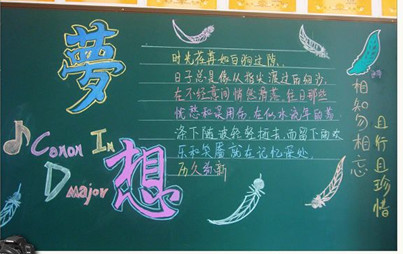 夢想
Canon In
D major
时光荏苒如白驹过隙,
日子总是像从指尖渡过的细沙,
在不经意间悄然滑落。往日那些
忧愁和误用伤,在似水流年的荡
涤下随波轻轻逝去,而留下的欢
乐和笑靥就在记忆深处,
历久弥新
相知勿相忘
且行且珍惜